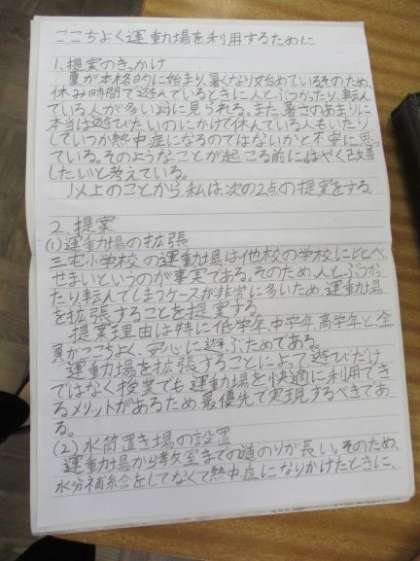 ここちよく運動場を利用するために
1、提案のきっかけ
夏が本格的に始まり、暑くなり始めている。そのため、
休み時間で遊んでいるときに人とぶつかったり、転ん
でいる人が多い に見られる。また、暑さのあまりに
本当は遊びたいのにかげで休んでいる人もいたり
していつか熱中症になるのではないかと不安に思っ
ている。そのようなことが起こる前にはやく改善
したいと考えている。
以上のことから、私は、次の2点の提案をする
2、提案
(1)運動場の拡張
小学校の運動場は他校の学校に比べ、
せまいというのが事実である。そのため、人とぶつか
たり転んでしまうケースが非常に多いため、運動場
を拡張することを提案する。
提案理由は特に低学年、中学年、高学年と、全
員がここちよく、安心に遊ぶためである。
運動場を拡張することによって遊びだけ
ではなく授業でも運動場を快適に利用でき
るメリットがあるため、最優先で実現するべきであ
る。
(2)水筒置き場の設置
運動場から教室までの道のりが長い。そのため、
水分補給をしてなくて熱中症になりかけたときに、